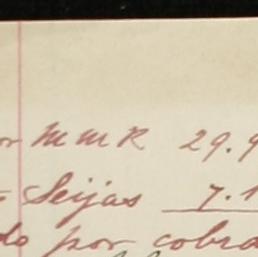 or M M R 29.9
Seijas 7.1
do por cobra